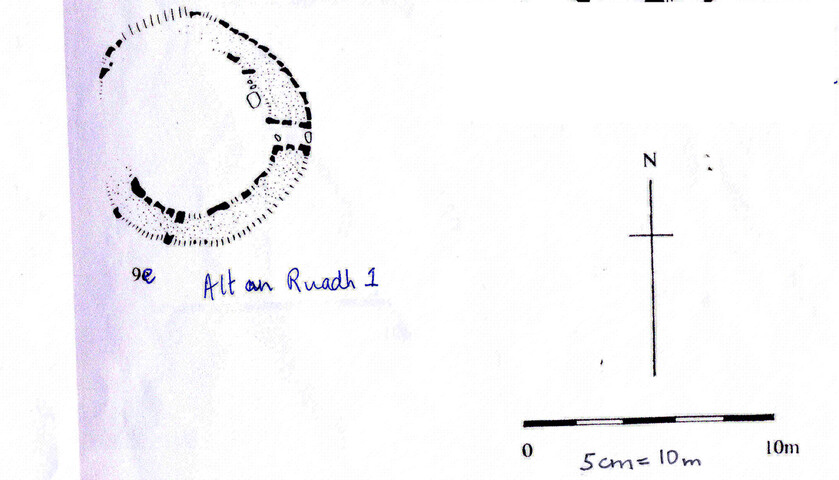 N
9e
Alt an Ruadh 1
0
10m
5cm = 10m